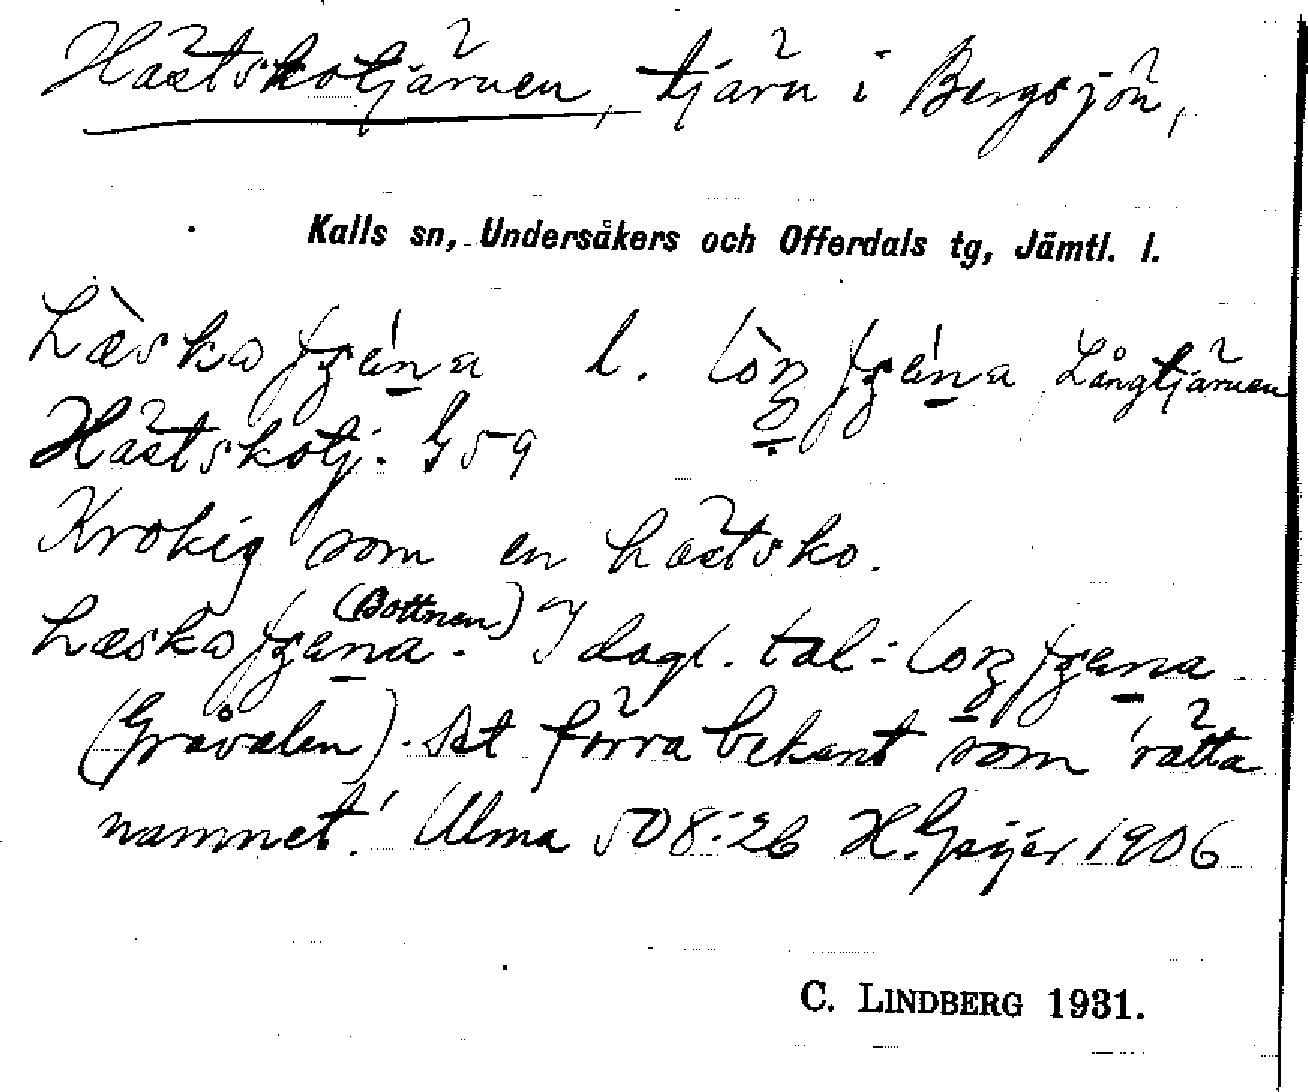 Hästskotjärnen, tjärn i Bergsjön,
Kalls sn, Undersåkers och Offerdals tg, Jämtl. l.
l. Långtjärnen
Hästskotj. G59
Krokig som en hästsko.
(Bottnen) I dagl. tal:
(Gråvalen). Det förra bekant som 'rätta
namnet.' Ulma 508:26 H. Geijer 1906
C. LINDBERG 1931.